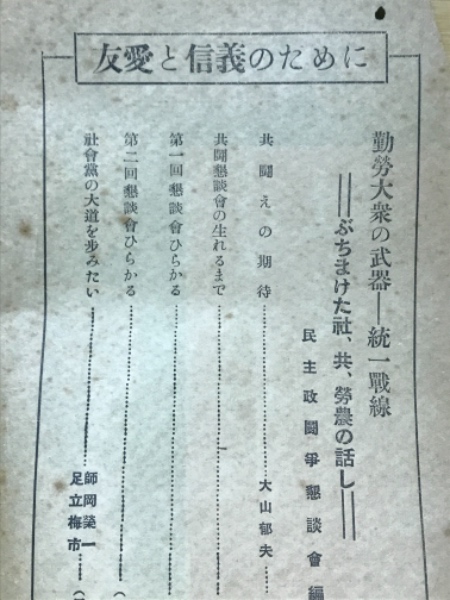 友愛と信義のために
勤勞大衆の武器―統一戰線
＝＝ぶちまけた社、共、勞農の話し＝＝
民主政鬪爭懇談會編
共鬪えの期待……………大山郁夫……
共鬪懇談會の生れるまで……………
第一回懇談會ひらかる……………
第二回懇談會ひらかる……………（
社會黨の大道を步みたい……………師岡榮一
足立梅市……（